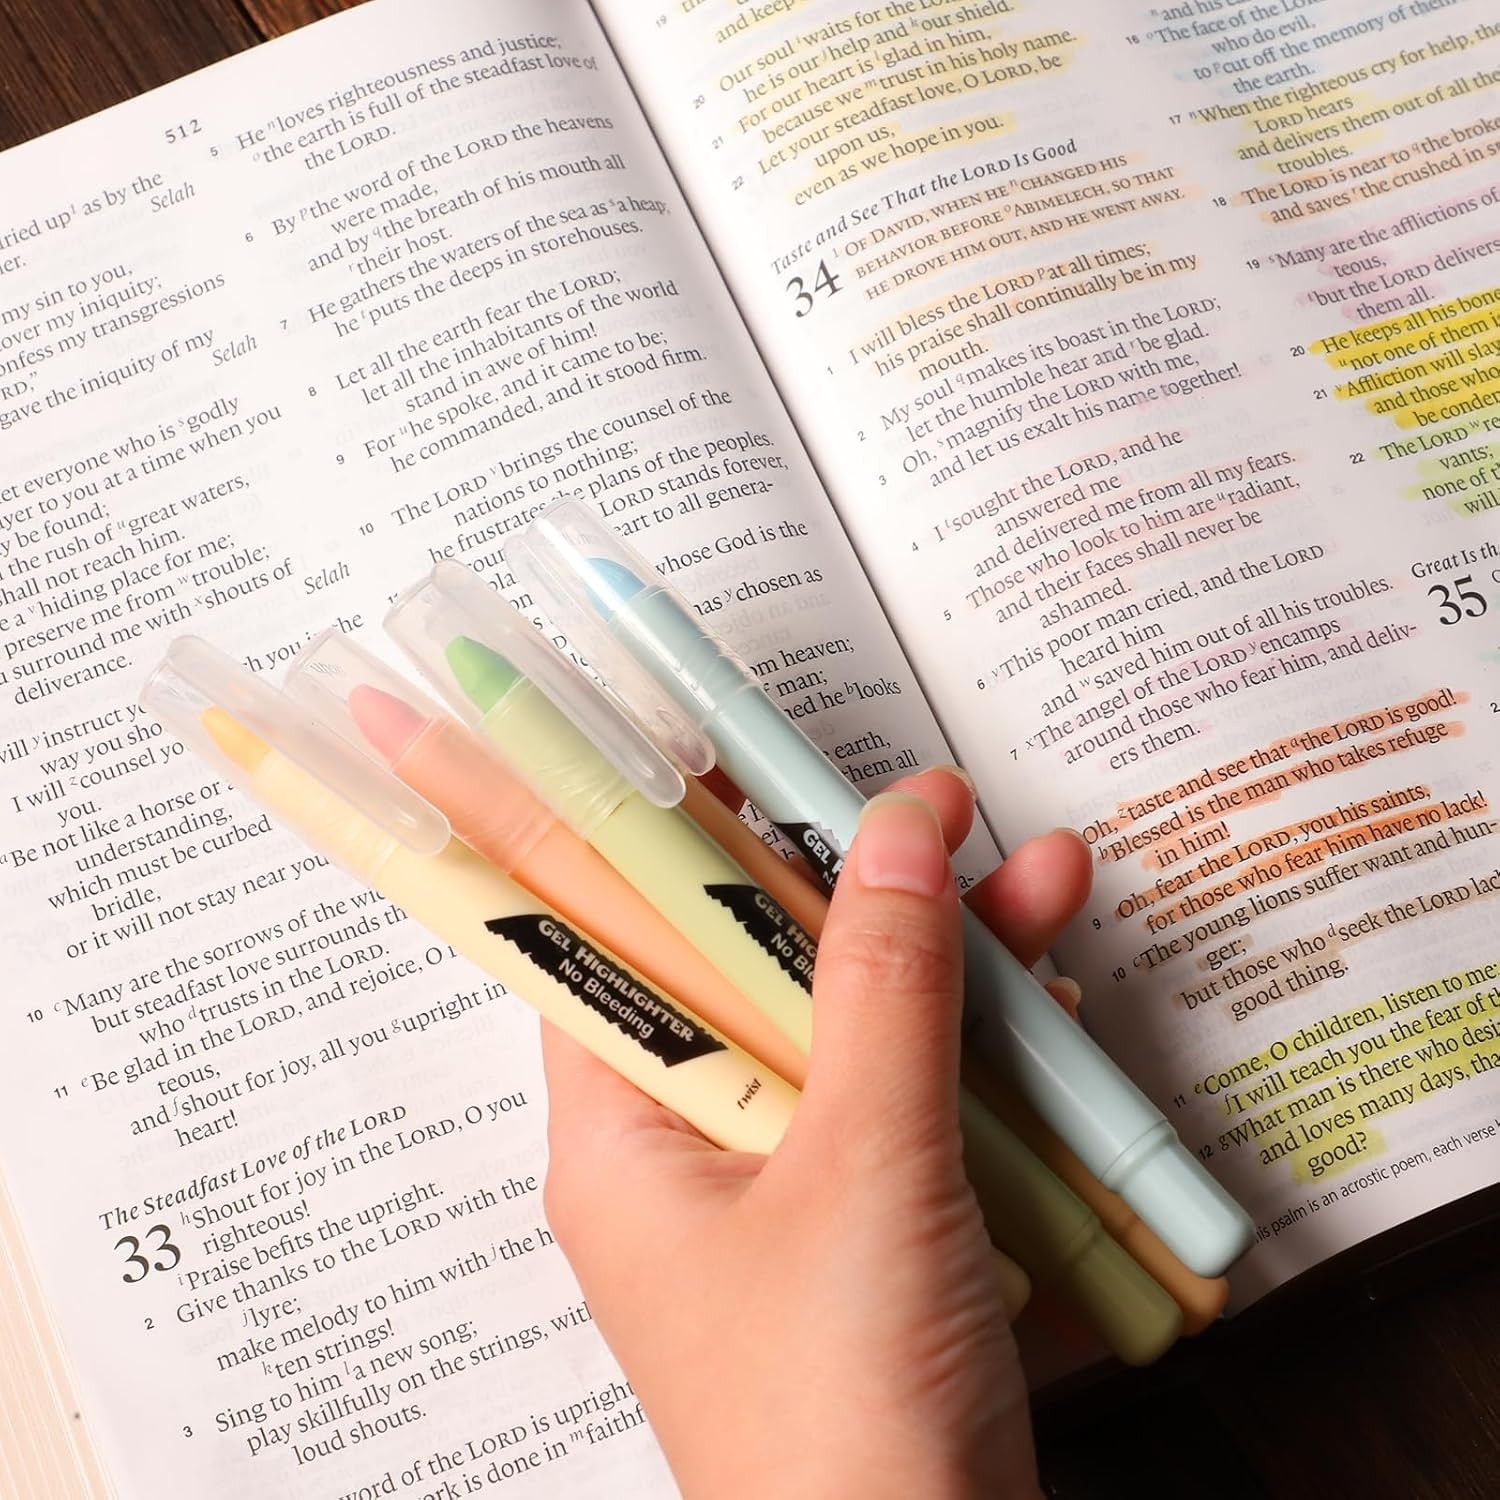 512
dried up¹ as by the
Selah
my sin to you,
my iniquity;
my transgressions
gave the iniquity of my
Selah
everyone who is ˢgodly
to you at a time when you
be found;
the rush of ᵘgreat waters,
shall not reach him.
a ᵛhiding place for me;
preserve me from ʷtrouble;
surround me with ˣshouts of
deliverance.
Selah
ʸinstruct
way you
I will ᶻcounsel
you.
ᵃBe not like a horse or
understanding,
which must be curbed
bridle,
or it will not stay near you
10 ᶜMany are the sorrows of the
but steadfast love surrounds
who ᵈtrusts in the LORD.
11 ᵉBe glad in the LORD, and rejoice, O
teous,
and ᶠshout for joy, all you ᵍupright in
heart!
The Steadfast Love of the LORD
33 ʰShout for joy in the LORD, O you
righteous!
ⁱPraise befits the upright.
2 Give thanks to the LORD with the
ʲlyre;
make melody to him with ʲthe
ᵏten strings!
3 Sing to him ˡa new song;
play skillfully on the strings, with
loud shouts.
word of the LORD is upright
is done in ᵐ
5 He ⁿloves righteousness and justice;
ᵒthe earth is full of the steadfast love of
the LORD.
6 By ᵖthe word of the LORD the heavens
were made,
and by ᑫthe breath of his mouth all
ʳtheir host.
7 He gathers the waters of the sea as ˢa heap;
he ᵗputs the deeps in storehouses.
8 Let all the earth fear the LORD;
let all the inhabitants of the world
stand in awe of him!
9 For ᵘhe spoke, and it came to be;
he commanded, and it stood firm.
10 The LORD ᵛbrings the counsel of the
nations to nothing;
he frustrates the plans of the peoples.
LORD stands forever,
to all genera-
whose God is the
has ʸchosen as
heaven;
man;
he ᵇlooks
earth,
them all
GEL HIGHLIGHTER
No Bleeding
twist
GEL
No
GEL
19
and keep
20 Our soul ⁱwaits for the
he is our ʲhelp and ᵏour shield.
21 For our heart is ˡglad in him,
because we ᵐtrust in his holy name.
22 Let your steadfast love, O LORD, be
upon us,
even as we hope in you.
Taste and See That the LORD Is Good
34 ¹ OF DAVID, WHEN HE ⁿCHANGED HIS
BEHAVIOR BEFORE ᵒABIMELECH, SO THAT
HE DROVE HIM OUT, AND HE WENT AWAY.
1 I will bless the LORD ᵖat all times;
his praise shall continually be in my
mouth.
2 My soul ᑫmakes its boast in the LORD;
let the humble hear and ʳbe glad.
3 Oh, ˢmagnify the LORD with me,
and let us exalt his name together!
4 I ᵗsought the LORD, and he
answered me
and delivered me from all my fears.
5 Those who look to him are ᵘradiant,
and their faces shall never be
ashamed.
6 ᵛThis poor man cried, and the LORD
heard him
and ʷsaved him out of all his troubles.
7 ˣThe angel of the LORD ʸencamps
around those who fear him, and deliv-
ers them.
Oh, ᶻtaste and see that ᵃthe LORD is good!
ᵇBlessed is the man who takes refuge
in him!
9 Oh, fear the LORD, you his saints,
for those who fear him have no lack!
10 ᶜThe young lions suffer want and hun-
ger;
but those who ᵈseek the LORD lack
good thing.
11 ᵉCome, O children, listen to me;
ᶠI will teach you the fear of
12 ᵍWhat man is there who
and loves many days,
good?
psalm is an acrostic poem, each verse
ⁿand his
16 ᵒThe face of the
who do evil,
to ᵖcut off the memory of them
the earth.
17 ⁿWhen the righteous cry for help, the
LORD hears
and delivers them out of all
troubles.
18 The LORD is near to ᑫthe
and saves ʳthe crushed in
19 ˢMany are the afflictions of
teous,
ᵗbut the LORD delivers
them all.
20 He keeps all his
ᵘnot one of them
21 ᵛAffliction will slay
and those who
be
22 The LORD ʷ
vants;
none of
will
Great Is
35